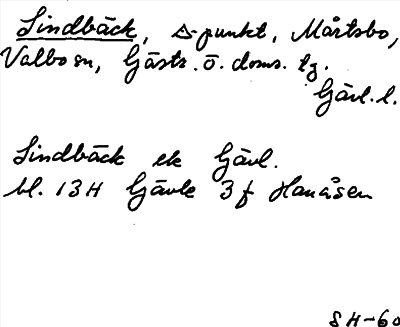 Lindbäck, △-punkt, Mårtsbo,
Valbo sn, Gästr. ö. doms. tg.
Gävl. l.
Lindbäck ek Gävl.
bl. 13H Gävle 3f Hanåsen
SH-60